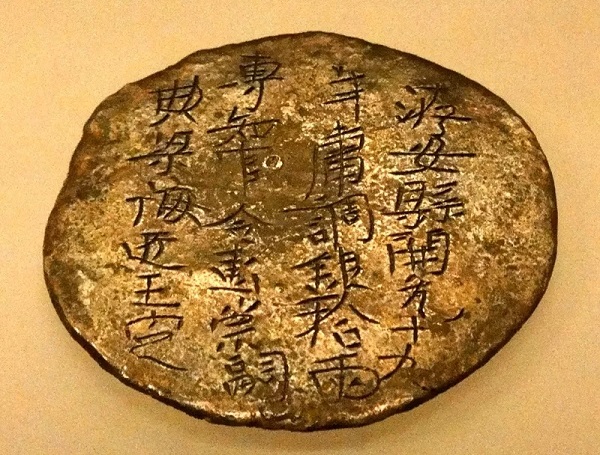 洊安縣開元十九
年庸調銀拾兩
專知官令彭崇嗣
典梁海匠王定